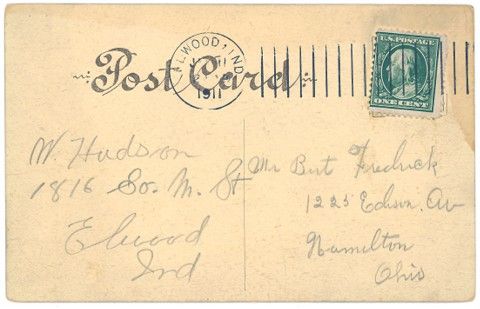 Post Card
ELWOOD, IND
1911
U.S. POSTAGE
ONE CENT
W. Hudson
1816 So. M. St
Elwood
Ind
Mr Bert Fredrick
1225 Edison. Av
Hamilton
Ohio